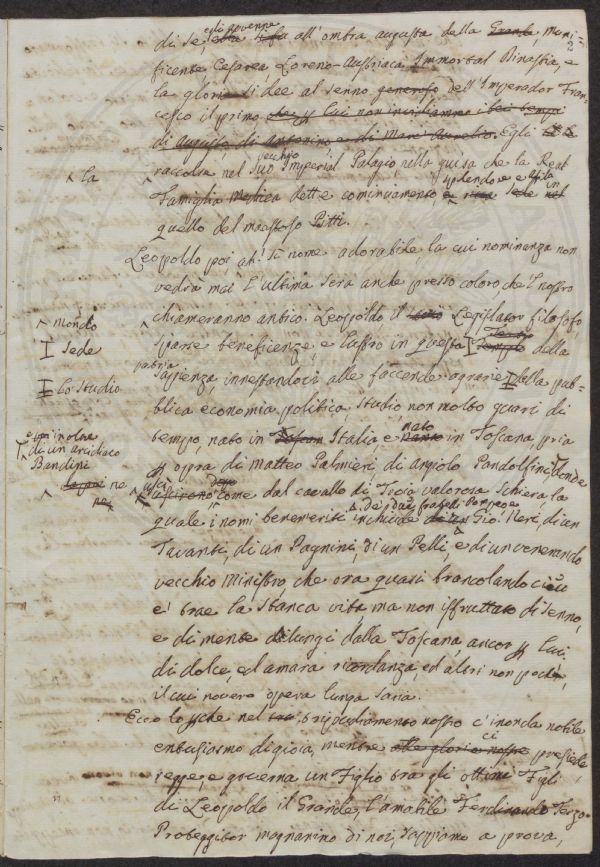 di se, egli povenne all'ombra augusta della Grande, Muni=
2
ficente Cesarea Loreno-Austriaca Immortal Dinastia, e
la gloria si dee al senno generoso dell'Imperador Fran
cesco il primo che per lui non invidiammo i bei tempi
di Augusto, di Antonino e di Marc'Aurelio. Egli
la
raccolse nel suo vecchio Imperial Palagio, nella guisa che la Real
Famiglia Medicea dette cominciamento splendore e asilo in
quello del maestoso Pitti.
Leopoldo poi, ah! sì nome adorabile la cui nominanza non
vedrà mai l'ultima sera anche presso coloro che 'l nostro
mondo
chiameranno antico. Leopoldo il Legislator filosofo,
sede
sparse beneficenze, e lustro in questa Tempio della
patria
lo studio
sapienza, innestandoci alle faccende agrarie della pub=
blica economia politica, studio non molto guari di
tempo, nato in Toscan Italia, e nato in Toscana pria
e poi in oltre
di un arcidiaco
Bandini
per opra di Matteo Palmieri, di Angiolo Pandolfini, donde
ne
ne
uscirono come dal cavallo di Troia valorosa schiera, la
quale i nomi benemeriti inchiude de' due fratelli Pompeo e Gio. Neri, di un
Tavanti, di un Pagnini, di un Pelli, e di un venerando
vecchio Ministro, che ora quasi brancolando
e' trae la stanca vita ma non isfruttato di senno,
e di mente dilungi dalla Toscana, ancor per lui
di dolce, ed amara ricordanza, ed altri non pochi,
il cui novero opera lunga saria.
Ecco lo perché nel tripudiamento nostro c'inonda nobile
entusiasmo di gioia, mentre alle glorie nostre ci presiede,
regge, e governa un Figlio tra gli ottimi Figli
di Leopoldo il Grande, l'amabile Ferdinando Terzo.
Proteggitor magnanimo di noi, sappiamo a prova,